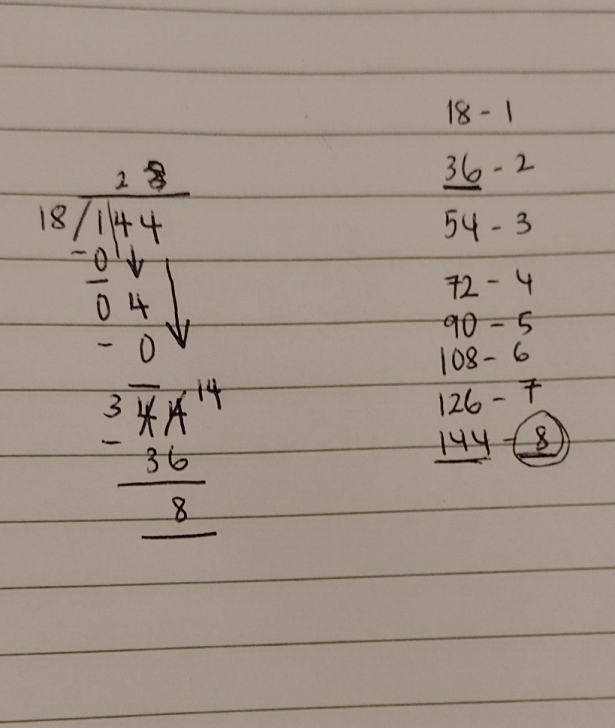 2 8
18/144
-0
04
- 0
3 44 14
- 36
8
18 - 1
36 - 2
54 - 3
72 - 4
90 - 5
108 - 6
126 - 7
144 - 8